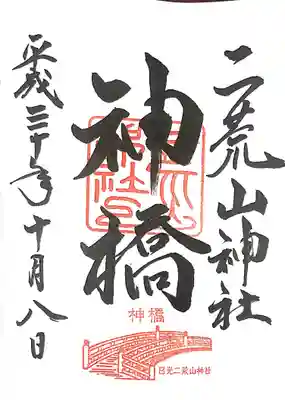 二荒山神社
神橋
平成三十年十月八日
神橋
日光二荒山神社